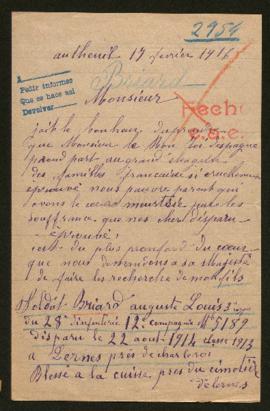 2954
autheuil 17 fevrier 1916
Briard
Pedir informes
Que se hace asi
Devolver
Monsieur
Fech
ese
jait le bonheur daprendre
que Monsieur le Roi des pagne
prend part au grand chagrin
des familles francaise si cruelement
eprouvé nous pauvre parent qui
avons le cœur meurtrie par les
souffrance que nos cher disparu
éprouvé,
cest du plus pronford du cœur
que nous demandions a sa Magesté
de faire les recherche de mon fils
Soldat Briard auguste Louis
du 28e dinfanterie 12e compagnie No 5189
disparu le 22 aout 1914 classe 1913
a Lernes près de charleroi
Blessé a la cuisse près du cimetière
de Lernes